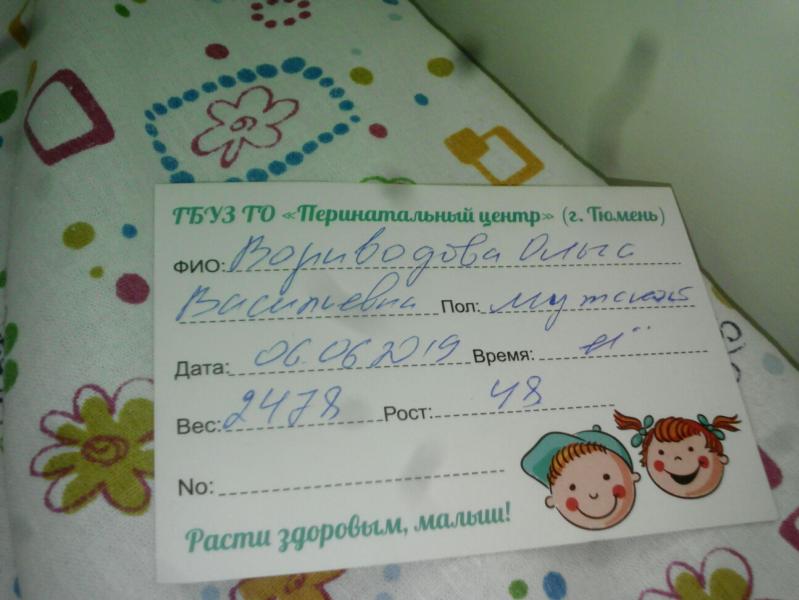 ГБУЗ ТО «Перинатальный центр» (г. Тюмень)
ФИО: Вориводова Ольга
Васильевна Пол: мужской
Дата: 06.06.2019 Время: 11
Вес: 2478 Рост: 48
No:
Расти здоровым, малыш!